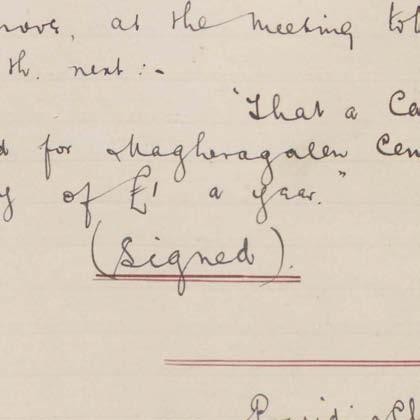 move, at the meeting to
th. next :-
"That a Ca
d for Magheragalen Cem
y of £1 a year."
(Signed).